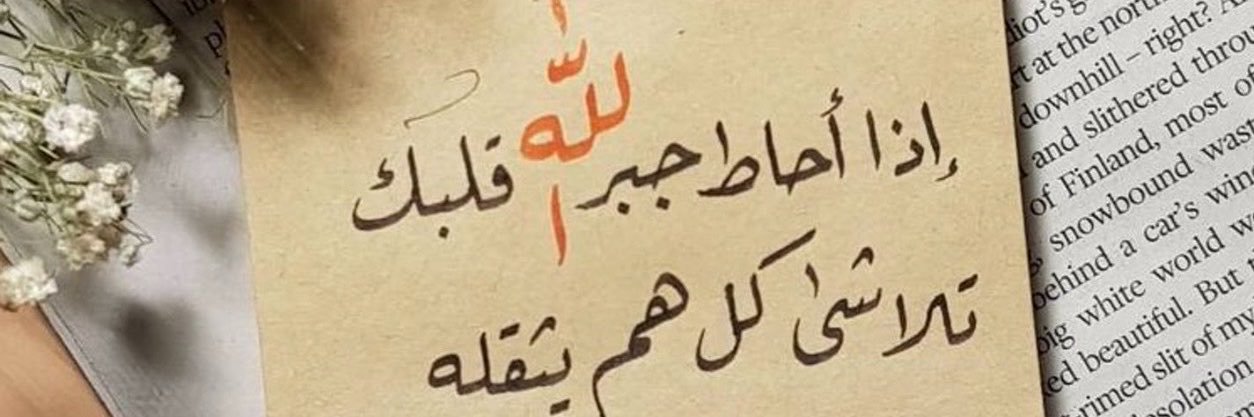 إذا أحاط جبر الله قلبك
تلاشى كل هم يثقله
diot's
at the north
downhill – right?
and slithered throu
of Finland, most of
snowbound wast
behind a car's win
big white world w
ed beautiful. But
rimed slit of my
solation